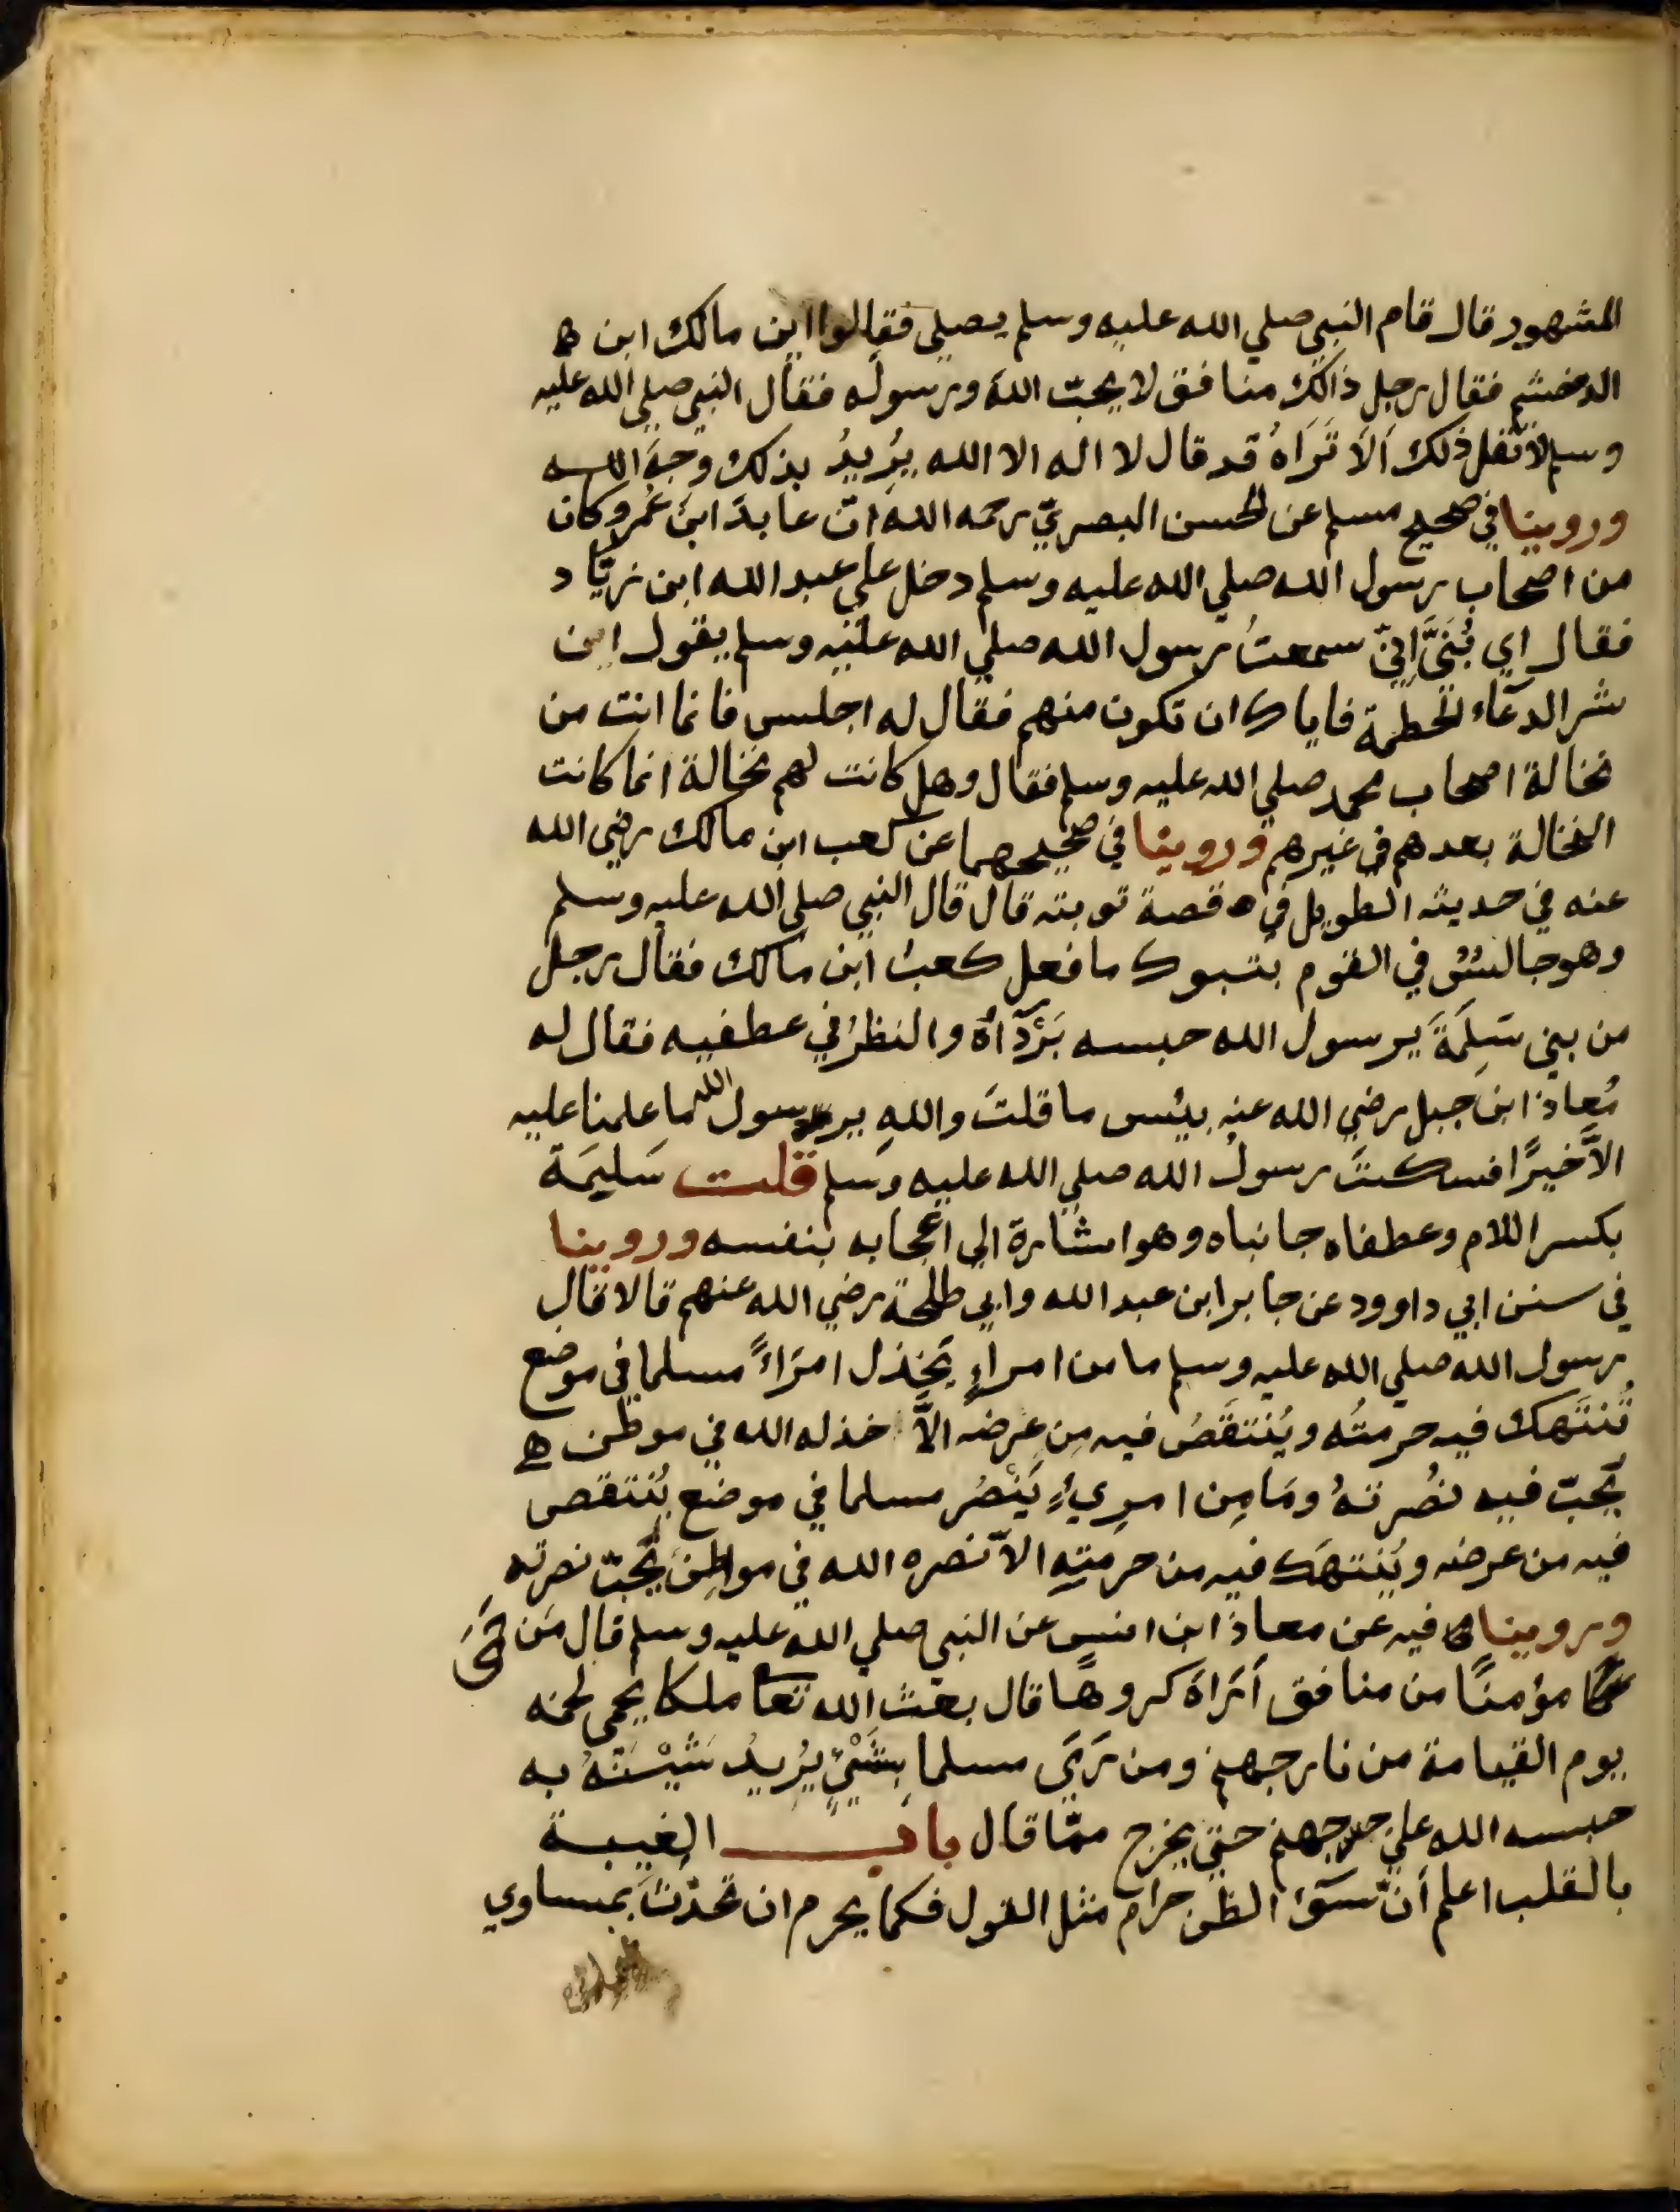 المشهور قال قام النبي صلي الله عليه وسلم يصلي فقالوا اين مالك ابن
الدخشم فقال رجل ذالك منافق لا يحبّ اللهَ ورسوله فقال النبي صلي الله عليه
وسلم لا تقل ذلك اَلَا تَرَاهُ قد قال لا اله الا الله يُرِيدُ بذلك وجهَ الله
وروينا في صحيح مسلم عن الحسن البصريّ رحمه الله انّ عابدَ ابنَ عُمروكان
من اصحاب رسول الله صلي الله عليه وسلم دخل علي عبد الله ابن زيّاد
فقال اي بُنَيَّ اِنيّ سمعتُ رسول الله صلي الله عليه وسلم يقول اين
شر الدعآء الحطمة فاياك ان تكون منهم فقال له اجلس فانما انت من
نخالة اصحاب محمد صلي الله عليه وسلم فقال وهل كانت لهم نخالة انما كانت
النخالة بعدهم في غيرهم وروينا في صحيحهما عن كعب ابن مالك رضي الله
عنه في حديثه الطويل في قصة توبته قال قال النبي صلي الله عليه وسلم
وهو جالس في القوم بتبوك ما فعل كعبُ ابن مالك فقال رجل
من بني سَلِمَةَ يرسول الله حبسه بَرْدَآهُ والنظرُ في عطفيه فقال له
مُعاذ ابن جبل رضي الله عنه بيئس ما قلتَ واللهِ يرسول الله ما علمنا عليه
الاَّ خيرًا فسكتَ رسولُ الله صلي الله عليه وسلم قلت سَلِيمَة
بكسر اللام وعطفاه جانباه وهو اشارة الي اعجابه بنفسه وروينا
في سنن ابي داوود عن جابر ابن عبد الله وابي طلحة رضي الله عنهم قالا قال
رسول الله صلي الله عليه وسلم ما من امراءٍ يَخذل امرَاءً مسلما في موضع
تُنتَهك فيه حرمتُه ويُنتقَصُ فيه مِن عِرضه الاَّ خذله الله في موطن
يحبّ فيه نصُرتهُ ومَا مِن امرِيءٍ يَنْصُر مسلما في موضع يُنتقص
فيه من عرضه ويُنتهَك فيه من حرمتِهِ الاّ نصره الله في مواطِنَ يُحبّ نصرته
وروينا فيه عن معاذ ابن انسٍ عن النبي صلي الله عليه وسلم قال مَن حَمَي
مؤمنًا من منافق أرَاهَ كروهًا قال بعث الله تعا ملكا يحمي لحمه
يوم القيامة من نار جهنم ومن رَمَي مسلما بِشَيْئٍ يُرِيدُ شَيْنَهُ به
حبسه الله علي جهنم حتي يخرج ممّا قال باب الغِيبة
بالقلب اعلم أنّ سوَء الظن حرام مثل القول فكما يحرم ان تحدّثَ بمساوي